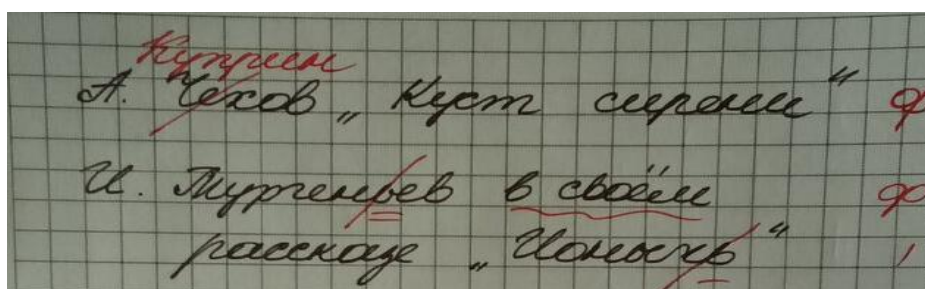 Куприн
А. Чехов „Куст сирени“ ф
И. Тургеньев в своём ф
рассказе „Ионычь“ /